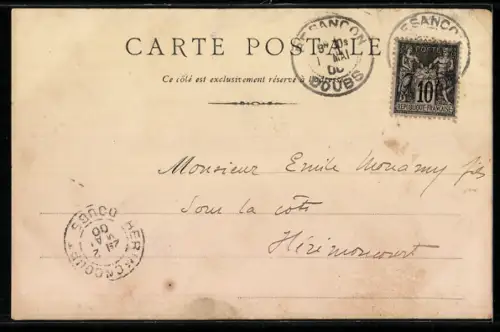 CARTE POSTALE
Ce côté est exclusivement réservé à
BESANÇON
1 MAI
00
DOUBS
BESANÇON
POSTES
10
REPUBLIQUE FRANÇAISE
Monsieur Emile Monamy fils
Sous la côte
Hérimoncourt
HERIMONCOURT
2
MAI
00
DOUBS